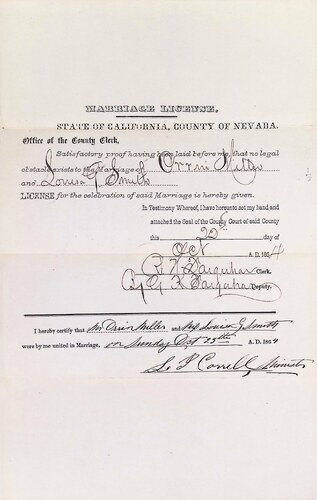 MARRIAGE LICENSE.
STATE OF CALIFORNIA, COUNTY OF NEVADA.
Office of the County Clerk,
Satisfactory proof having been laid before me, that no legal
obstacle exists to the Marriage of Orrin Miller
and Louisa G Smith
LICENSE for the celebration of said Marriage is hereby given.
In Testimony Whereof, I have hereunto set my hand and
attached the Seal of the County Court of said County
this 22d day of
Oct A. D. 1864
R. H. Farquhar Clerk.
By G. K. Farquhar Deputy.
I hereby certify that Mr Orrin Miller and Louisa G Smith
were by me united in Marriage, on Sunday Oct A. D. 1864
Correll, Minister